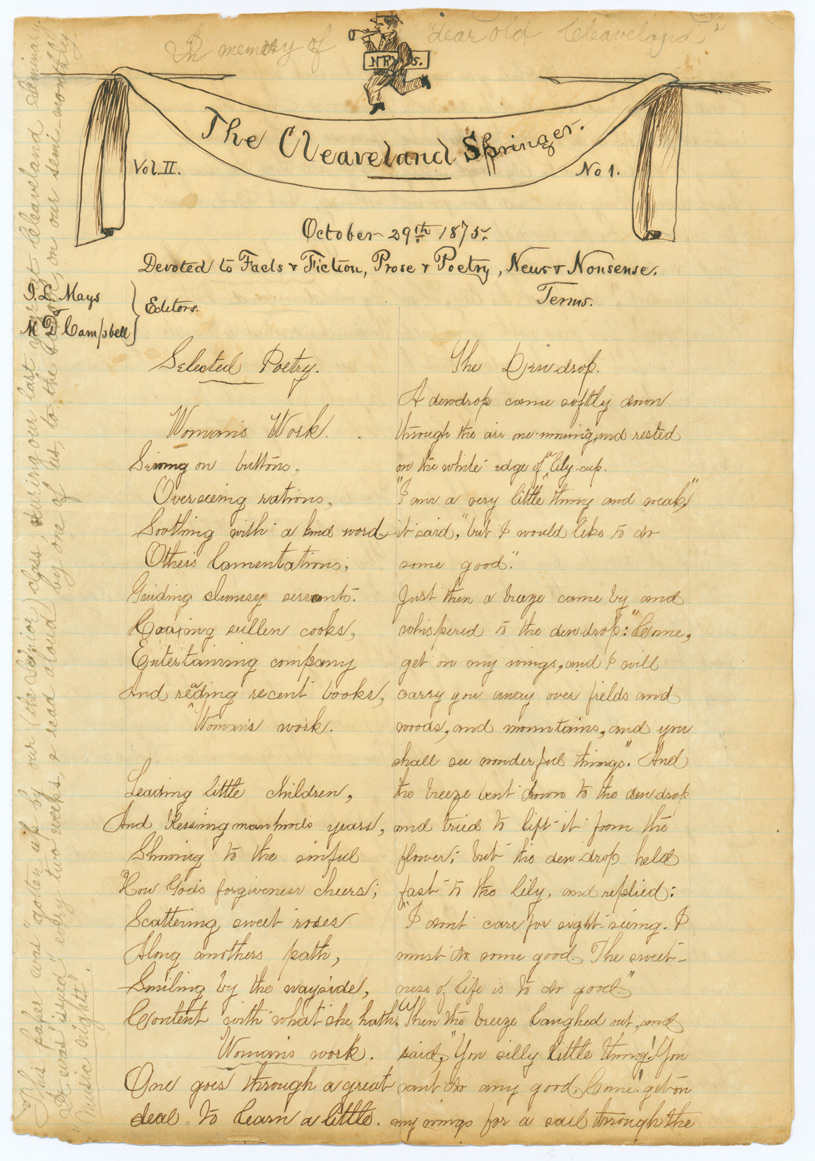 In memory of "dear old Cleaveland."
NEWS.
The Cleaveland Springer.
Vol. II.
No 1.
October 29th 1875.
Devoted to Facts & Fiction, Prose & Poetry, News & Nonsense.
Terms.
Mays
M D Campbell
Editors.
Selected Poetry.
Woman's Work.
Sewing on buttons,
Overseeing rations,
Soothing with a kind word
Others lamentations;
Guiding clumsy servants.
Coaxing sullen cooks,
Entertaining company
And reading recent books,
Woman's work.
Leading little children,
And blessing manhoods years,
Showing to the sinful
How Gods forgiveness cheers;
Scattering sweet roses
Along anothers path,
Smiling by the wayside,
Content with what she hath.
Woman's work.
One goes through a great
deal to learn a little.
The Dewdrop.
A dewdrop came softly down
through the air one morning, and rested
on the white edge of lily-cup.
"I am a very little thing and weak"
it said, "but I would like to do
some good."
Just then a breeze came by and
whispered to the dewdrop: "Come,
get on my wings, and I will
carry you away over fields and
woods, and mountains, and you
shall see wonderful things". And
the breeze bent down to the dewdrop
and tried to lift it from the
flower; but the dew drop held
fast to the lily, and replied:
"I don't care for sight-seeing. I
must do some good. The sweet-
ness of life is to do good"
When the breeze laughed out, and
said, "You silly little thing! You
can't do any good. Come! get on
my wings for a sail through the
This paper was "gotten up" by our (the Senior) class, during our last year at Cleaveland Seminary.
It was "issued" every two weeks, & read aloud by one of us, to the school, on our semi monthly
"music night".